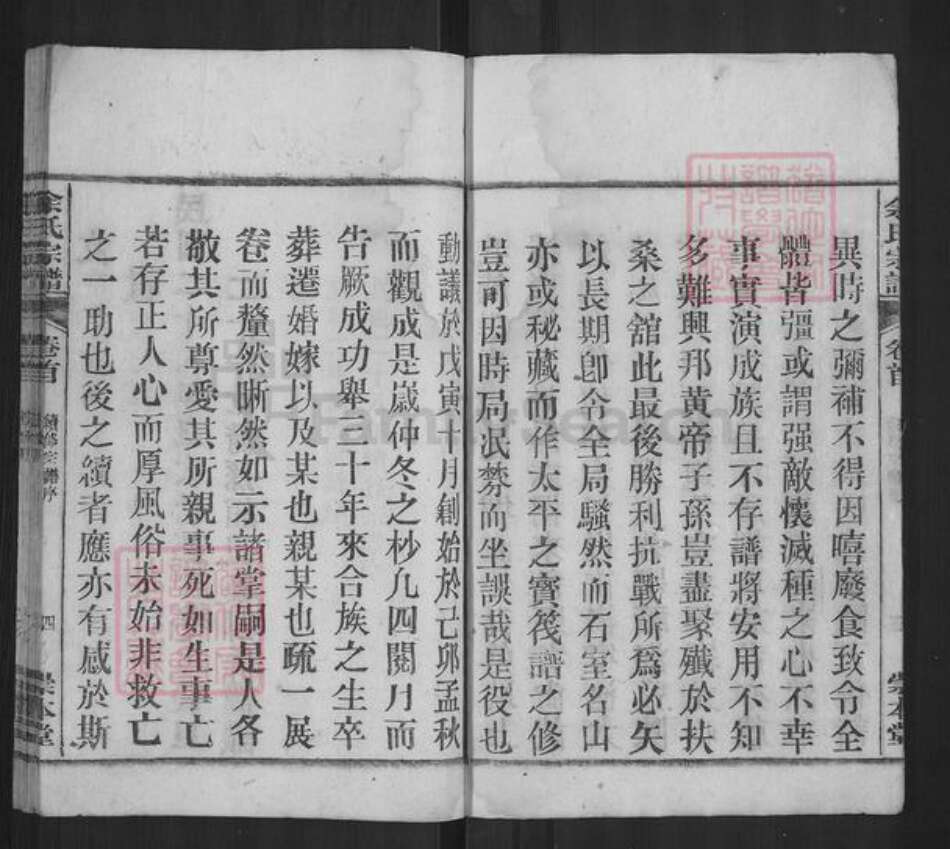 余氏宗譜
卷首
崇本堂
異時之彌補不得因噎廢食致令全
體皆彊或謂强敵懷滅種之心不幸
事實演成族且不存譜將安用不知
多難興邦黄帝子孫豈盡聚殲於扶
桑之舘此最後勝利抗戰所爲必矢
以長期卽令全局騷然而石室名山
亦或秘藏而作太平之寳筏譜之修
豈可因時局泯棼而坐誤哉是役也
動議於戊寅十月創始於己卯孟秋
而觀成是歲仲冬之杪凢四閱月而
告厥成功舉三十年來合族之生卒
葬遷婚嫁以及某也親某也疏一展
卷而釐然晰然如示諸掌嗣是人各
敬其所尊愛其所親事死如生事亡
若存正人心而厚風俗未始非救亡
之一助也後之續者應亦有感於斯
余氏宗譜
卷首
續修宗譜序
四
崇本堂
FamilySearch